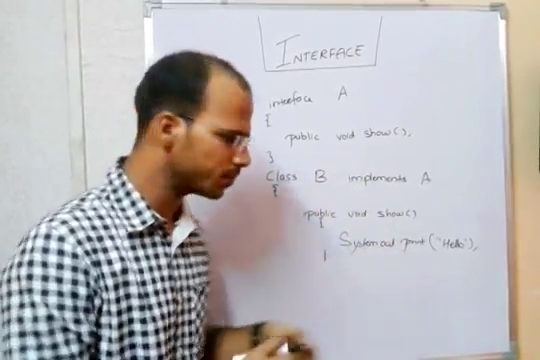 INTERFACE
interface A
{
public void show();
}
Class B implements A
{
public void show()
{
System.out.print("Hello");
}